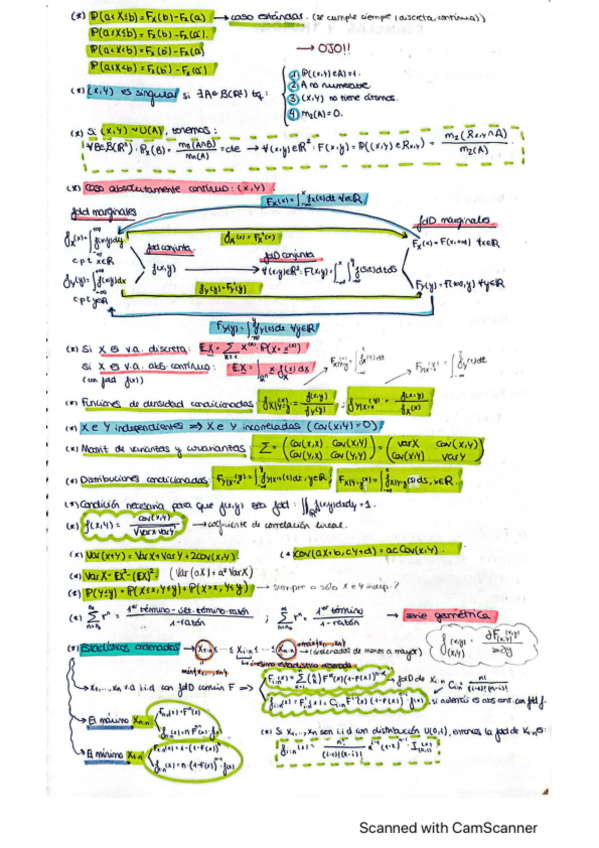 (*) P(a<X≤b) = F_X(b) - F_X(a) → caso estándar. (se cumple siempre (discreta, continua))
P(a≤X≤b) = F_X(b) - F_X(a⁻).
P(a<X<b) = F_X(b⁻) - F_X(a)
P(a≤X<b) = F_X(b⁻) - F_X(a⁻)
→ OJO!!
(*) (X,Y) es singular si ∃A∈B(R²) tq:
① P((X,Y)∈A)=1.
② A no numerable.
③ (X,Y) no tiene átomos.
④ m₂(A)=0.
(*) Si (X,Y) ~ U(A), tenemos:
∀B∈B(R²): P_X(B) = m₂(A∩B)/m₂(A) → ∀(x,y)∈R²: F(x,y) = P((X,Y)∈R_{x,y}) = m₂(R_{x,y}∩A)/m₂(A)
(*) Caso absolutamente continuo: (X,Y)
F_X(x) = ∫_{-∞}^x f_X(t)dt ∀x∈R
fdd marginales
fdD marginales
f_X(x) = ∫_{-∞}^{+∞} f(x,y)dy
c.p.t. x∈R
f_X(x) = F_X'(x)
F_X(x) = F(x,+∞) ∀x∈R
fdd conjunta
f(x,y)
fdD conjunta
∀(x,y)∈R²: F(x,y) = ∫_{-∞}^x ∫_{-∞}^y f(s,t)dtds
f_Y(y) = ∫_{-∞}^{+∞} f(x,y)dx
c.p.t. y∈R
f_Y(y) = F_Y'(y)
F_Y(y) = F(+∞,y) ∀y∈R
F_Y(y) = ∫_{-∞}^y f_Y(t)dt ∀y∈R
(*) Si X es v.a. discreta: EX = Σ x^(k) P(X = x^(k))
Si X es v.a. abs. continua: EX = ∫ x·f_X(x) dx
(con fdd f(x))
(*) Funciones de densidad condicionadas: f_{X|Y=y} = f(x,y)/f_Y(y) ; f_{Y|X=x} = f(x,y)/f_X(x)
(*) X e Y independientes ⇒ X e Y incorreladas (Cov(X,Y)=0)
(*) Matriz de varianzas y covarianzas Σ = (Cov(X,X) Cov(X,Y) = (Var X Cov(X,Y)
Cov(Y,X) Cov(Y,Y)) Cov(X,Y) Var Y)
(*) Distribuciones condicionadas:
(*) Condición necesaria para que f(x,y) sea fdd: ∬ f(x,y)dxdy = 1.
(*) ρ(X,Y) = Cov(X,Y)/√(VarX VarY) → coeficiente de correlación lineal.
(*) Var(X+Y) = VarX + VarY + 2Cov(X,Y).
(*) Cov(aX+b, cY+d) = ac Cov(X,Y).
(*) Var X = EX² - (EX)². (Var(aX) = a² VarX)
(*) P(Y≤y) = P(X≤x, Y≤y) + P(X>x, Y≤y) → siempre o sólo X e Y indep.?
(*) Σ rⁿ = (1er término - último término · razón)/(1 - razón) ; Σ rⁿ = 1er término/(1 - razón) → serie geométrica
(*) Estadísticos ordenados → X_{1:n} ≤ ... ≤ X_{i:n} ≤ ... ≤ X_{n:n} (ordenados de menor a mayor)
i-ésimo estadístico ordenado
→ X₁,...,Xₙ v.a. i.i.d con fdD común F ⇒
→ fdD de X_{i:n}
, si además es abs. cont. con fdd f.
→ El máximo X_{n:n}
F_{n:n}(x) = Fⁿ(x)
f_{n:n}(x) = n·F^{n-1}(x)·f(x)
→ El mínimo X_{1:n}
F_{1:n}(x) = 1-(1-F(x))ⁿ
f_{1:n}(x) = n·(1-F(x))^{n-1}·f(x)
(*) Si X₁,...,Xₙ son i.i.d con distribución U(0,1), entonces la fdd de X_{i:n} es:
Scanned with CamScanner